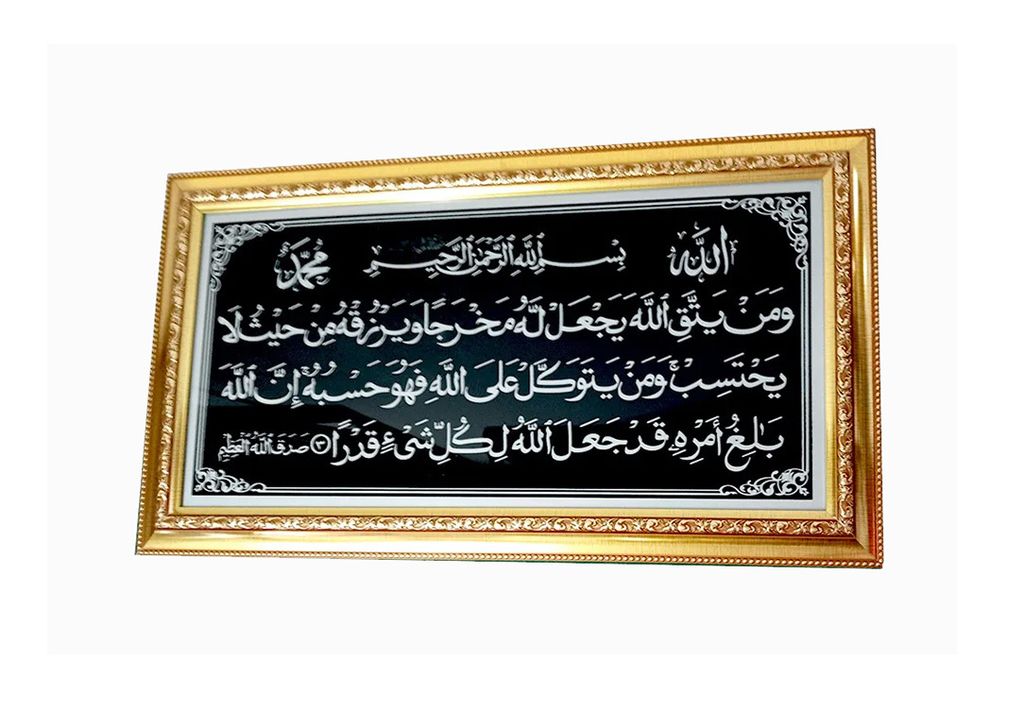 الله بِسْمِ ٱللَّهِ ٱلرَّحْمَٰنِ ٱلرَّحِيمِ مُحَمَّد
وَمَنْ يَتَّقِ ٱللَّهَ يَجْعَلْ لَّهُ مَخْرَجًا وَيَرْزُقْهُ مِنْ حَيْثُ لَا
يَحْتَسِبُ ۚ وَمَنْ يَتَوَكَّلْ عَلَى اللَّهِ فَهُوَ حَسْبُهُ ۚ إِنَّ اللَّهَ
بَٰلِغُ أَمْرِهِ ۚ قَدْ جَعَلَ ٱللَّهُ لِكُلِّ شَىْءٍ قَدْرًا ٣ صَدَقَ اللَّهُ الْعَظِيم